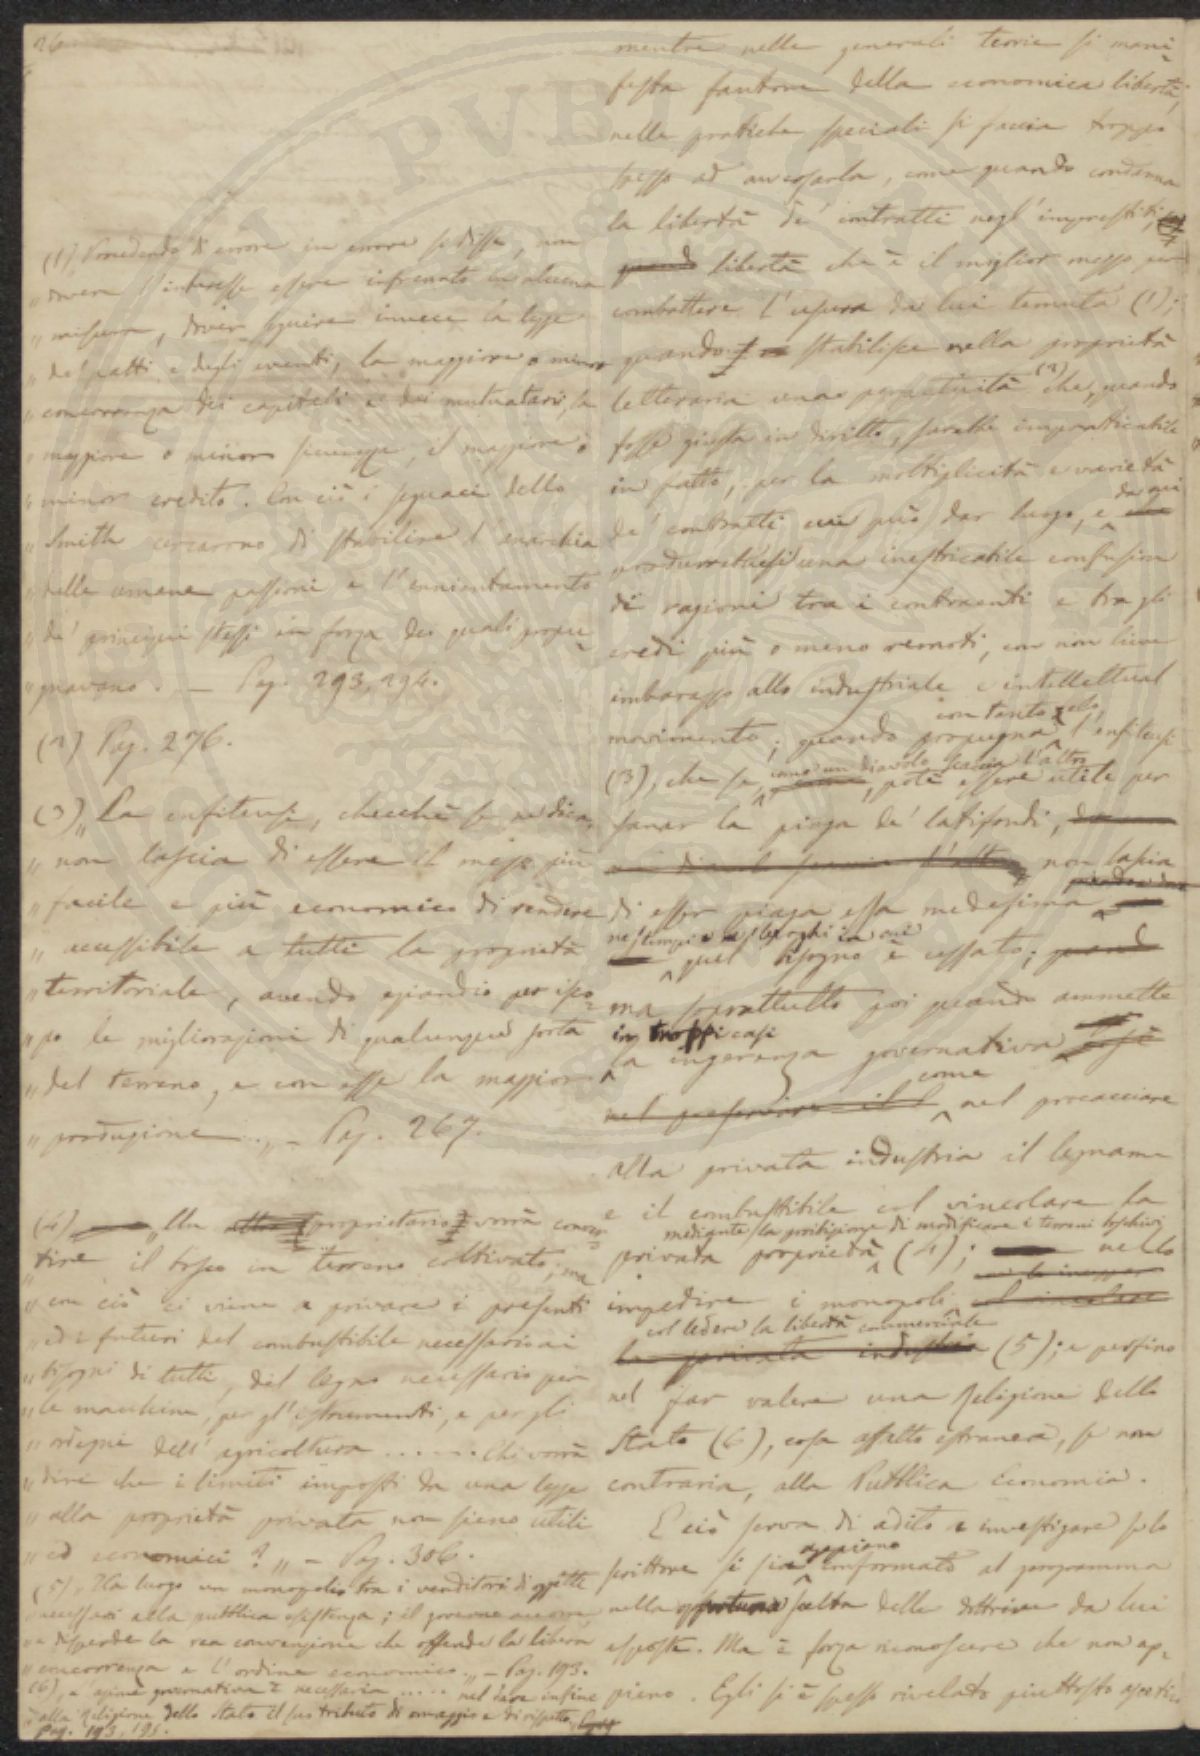 26
mentre nelle generali teorie si mani
festa fautore della economica libertà,
nelle pratiche speciali si faccia troppo
spesso ad avversarla, come quando condanna
la libertà de' contratti negl'imprestiti,
libertà che è il miglior mezzo per
combattere l'usura da lui temuta (1);
quando stabilisce nella proprietà
letteraria una perpetuità (2) che, quando
fosse giusta in diritto, sarebbe impraticabile
in fatto, per la moltiplicità e varietà
de' contratti cui può dar luogo, e da cui
una inestricabile confusione
di ragioni tra i contraenti e tra gli
eredi più o meno remoti, con non lieve
imbarazzo allo industriale e intellettual
movimento; quando propugna con tanto zelo, l'enfiteusi
(3), che se, come un diavolo scaccia l'altro, potè essere utile per
sanar la piaga de' latifondi,
non lascia
di esser piaga essa medesima
ne' tempi e ne' luoghi in cui quel bisogno è cessato;
ma soprattutto poi quando ammette
in troppi casi
la ingerenza governativa
come nel procacciare
alla privata industria il legname
e il combustibile col vincolare la
privata proprietà mediante la proibizione di modificare i terreni boschivi (4); nello
impedire i monopoli
col ledere la libertà commerciale (5); e perfino
nel far valere una Religione dello
Stato (6), cosa affatto estranea, se non
contraria, alla Pubblica Economia.
E ciò serva di adito a investigare se lo
scrittore si sia appieno conformato al programma
nella scelta delle dottrine da lui
esposte. Ma è forza riconoscere che non ap-
pieno. Egli si è spesso rivelato piuttosto
(1) Procedendo di errore in errore si disse, non
„ dovere l'interesse essere infrenato in alcuna
„ misura, dover seguire invece la legge
„ de' patti e degli eventi, la maggiore o minor
„ concorrenza dei capitali e dei mutuatari, la
„ maggiore o minor sicurezza, il maggiore o
„ minor credito. Con ciò i seguaci dello
„ Smith cercarono di stabilire l'anarchia
„ nelle umane passioni e l'annientamento
„ de' principii stessi in forza dei quali propu-
„ gnavano. — Pag. 293, 294.
(2) Pag. 276.
(3) „ La enfiteusi, checchè se ne dica,
„ non lascia di essere il mezzo più
„ facile e più economico di rendere
„ accessibile a tutti la proprietà
„ territoriale, avendo eziandio per isco-
„ po le migliorazioni di qualunque sorta
„ del terreno, e con esse la maggior
„ produzione. „ — Pag. 267.
(4) „ Un proprietario vorrà conver-
„ tire il bosco in terreno coltivato; ma
„ con ciò ei viene a privare i presenti
„ ed i futuri del combustibile necessario ai
„ bisogni di tutti, del legno necessario per
„ le macchine, per gl'istrumenti, e per gli
„ ordegni dell'agricoltura ...... Chi vorrà
„ dire che i limiti imposti da una legge
„ alla proprietà privata non sieno utili
„ ed economici? „ — Pag. 306.
(5) „ Ha luogo un monopolio tra i venditori di oggetti
„ necessari alla pubblica esistenza; il governo accorre
„ e disperde la rea convenzione che offende la libera
„ concorrenza e l'ordine economico. „ — Pag. 193.
(6) „ L'azione governativa è necessaria ..... nel dare infine
„ alla Religione dello Stato il suo tributo di omaggio e di rispetto.
Pag. 193, 195.